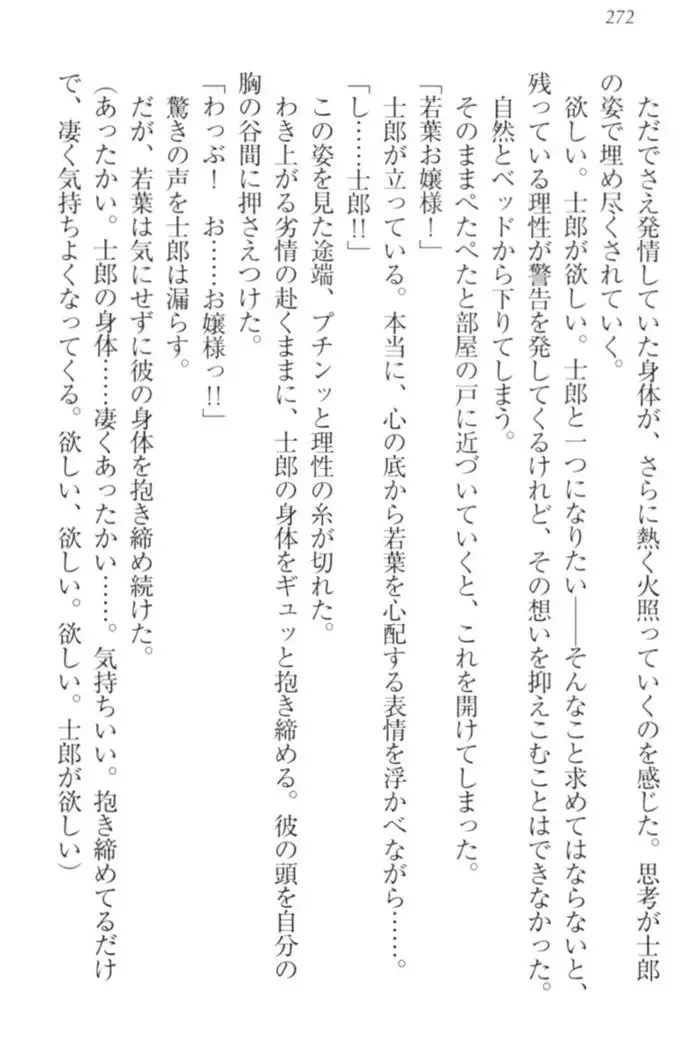 272
ただでさえ発情していた身体が、さらに熱く火照っていくのを感じた。思考が士郎
の姿で埋め尽くされていく。
欲しい。士郎が欲しい。士郎と一つになりたい――そんなこと求めてはならないと、
残っている理性が警告を発してくるけれど、その想いを抑えこむことはできなかった。
自然とベッドから下りてしまう。
そのままぺたぺたと部屋の戸に近づいていくと、これを開けてしまった。
「若葉お嬢様！」
士郎が立っている。本当に、心の底から若葉を心配する表情を浮かべながら……。
「し……士郎!!」
この姿を見た途端、プチンッと理性の糸が切れた。
わき上がる劣情の赴くままに、士郎の身体をギュッと抱き締める。彼の頭を自分の
胸の谷間に押さえつけた。
「わっぷ！　お……お嬢様っ!!」
驚きの声を士郎は漏らす。
だが、若葉は気にせずに彼の身体を抱き締め続けた。
（あったかい。士郎の身体……凄くあったかい……。気持ちいい。抱き締めてるだけ
で、凄く気持ちよくなってくる。欲しい、欲しい。欲しい。士郎が欲しい）